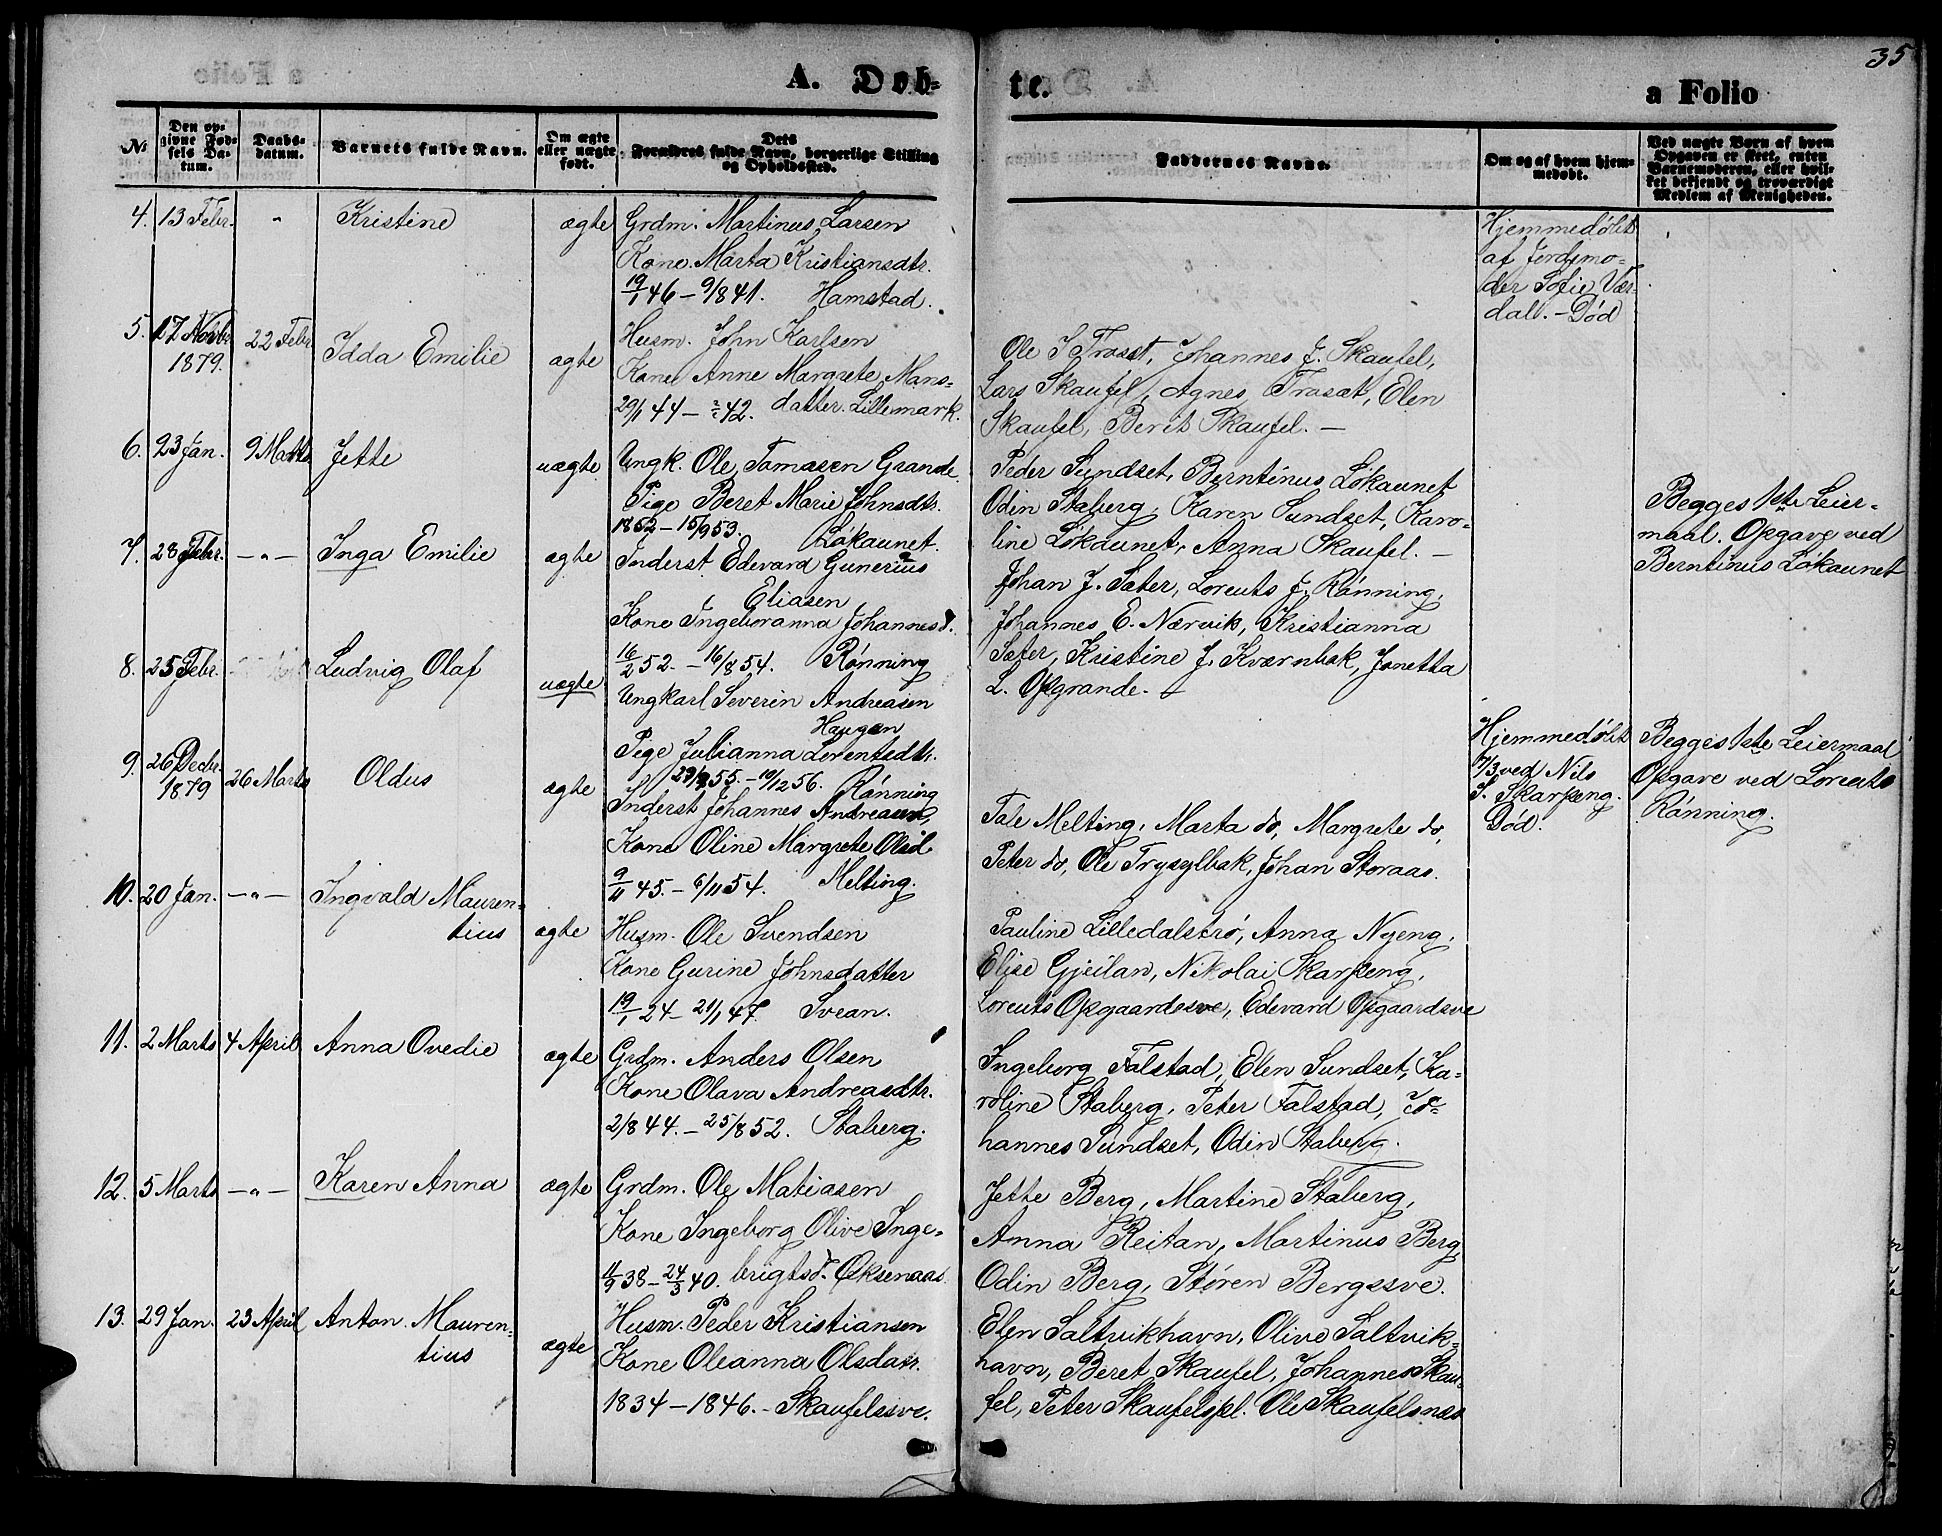 35
A. Døb-
te.
a Folio
№
Den op-
givne Fød-
sels Da-
tum.
Daabs-
datum.
Barnets fulde Navn.
Om ægte
eller uægte
født.
Dets
Forældres fulde Navn, borgerlige Stilling
og Opholdssted.
Faddernes Navne.
Om og af hvem hjem-
medøbt.
Ved uægte Børn af hvem
Opgaven er skeet, enten
Barnemoderen, eller hvil-
ket bekjendt og troværdigt
Medlem af Menigheden.
4. 13 Febr. " Kristine ægte Grdm. Martinus Larsen
Kone Marta Kristiansdtr.
19/1 46 – 9/8 41. Hamstad.
Hjemmedøbt
af Jordmo-
der Sofie Vær-
dal. – Død
5. 17 Novbr 1879. 22 Febr Idda Emilie ægte Husm. John Karlsen
Kone Anne Margrete Mons-
29/1 44 – 42. datter. Lillemark.
Ole I Traset, Johannes J. Skaufel,
Lars Skaufel, Agnes Trasat, Elen
Skaufel, Berit Skaufel. –
6. 23 Jan. 9 Marts Jette uægte Ungk. Ole Tomasen Grande.
Pige Beret Marie Johnsdtr.
1852 – 15/9 53. Løkaunet.
Peder Sundset, Berntinus Løkaunet
Odin Staberg, Karen Sundset, Karo-
line Løkaunet, Anna Skaufel. –
Begges 1ste Leier-
maal. Opgave ved
Berntinus Løkaunet
7. 28 Febr. – " – Inga Emilie ægte Inderst Edevard Gunerius
Eliasen
Kone Ingeboranna Johannesd.
16/2 52. – 16/8 54. Rønning
Johan J. Sæter, Lorents J. Rønning,
Johannes E. Nærvik, Kristianna
Sæter, Kristine J. Kværnbak, Jonetta
L. Opgrande. –
8. 25 Febr. Ludvig Olaf uægte Ungkarl Severin Andreasen
Haugan
Pige Julianna Lorentsdtr.
55. – 19/12 56. Rønning
Hjemmedøbt
7/3 ved Nils
S. Skarpeng.
Død.
Begges 1ste Leiermaal
Opgave ved Lorents
Rønning.
9. 26 Decbr. 1879 26 Marts Oldus ægte Inderst Johannes Andreasen,
Kone Oline Margrete Olsd.
9/11 45. – 6/11 54. Melting.
Tale Melting, Marta do, Margrete do,
Peter do, Ole Trysylbak, Johan Storaas.
10. 20 Jan. – " – Ingvald Mauren-
tius ægte Husm. Ole Svendsen
Kone Gurine Johnsdatter
19/1 24 – 21/1 47. Svean.
Pauline Lilledalstrø, Anna Nyeng,
Elise Gjeilan, Nikolai Skarpeng,
Lorents Opgaardssve, Edevard Opgaardsve
11. 2 Marts 4 April Anna Ovedie ægte Grdm. Anders Olsen
Kone Olava Andreasdtr.
2/8 44. – 25/8 52. Staberg.
Ingeborg Falstad, Elen Sundset, Ka-
roline Staberg, Peter Falstad, Jo-
hannes Sundset, Odin Staberg.
12. 5 Marts – " – Karen Anna ægte Grdm. Ole Matiasen
Kone Ingeborg Olive Inge-
11/9 38 – 24/3 40. brigtsd. Øksenaas.
Jette Berg, Martine Staberg,
Anna Reitan, Martinus Berg,
Odin Berg, Støren Bergssve.
13. 29 Jan. 23 April Anton Mauren-
tius ægte Husm. Peder Kristiansen
Kone Oleanna Olsdatr.
1834 – 1846. – Skaufelssve.
Elen Saltvikhavn, Olive Saltvik-
havn, Beret Skaufel, Johannes Skau-
fel, Peter Skaufelspl. Ole Skaufelsnæs